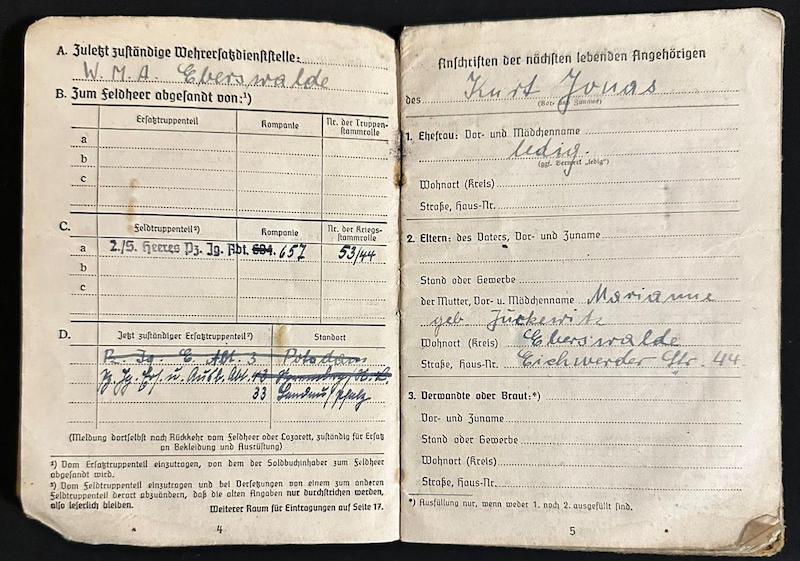 A. Zuletzt zuständige Wehrersatzdienststelle:
W. M. A. Eberswalde
B. Zum Feldheer abgesandt von:¹)
Ersatztruppenteil Kompanie Nr. der Truppen-
stammrolle
a
b
c
C. Feldtruppenteil²) Kompanie Nr. der Kriegs-
stammrolle
a 2./S. Heeres Pz. Jg. Abt. 657 53/44
b
c
D. Jetzt zuständiger Ersatztruppenteil²) Standort
Pz. Jg. E. Abt. 3 Potsdam
Pz. Jg. Ers. u. Ausb. Abt.
33 Landau/Pfalz
(Meldung dortselbst nach Rückkehr vom Feldheer oder Lazarett, zuständig für Ersatz
an Bekleidung und Ausrüstung)
¹) Vom Ersatztruppenteil einzutragen, von dem der Soldbuchinhaber zum Feldheer
abgesandt wird.
²) Vom Feldtruppenteil einzutragen und bei Versetzungen von einem zum anderen
Feldtruppenteil derart abzuändern, daß die alten Angaben nur durchstrichen werden,
also leserlich bleiben. Weiterer Raum für Eintragungen auf Seite 17.
4
Anschriften der nächsten lebenden Angehörigen
des Kurt Jonas
(Vor- und Zuname)
1. Ehefrau: Vor- und Mädchenname
ledig.
(ggf. Vermerk „ledig")
Wohnort (Kreis)
Straße, Haus-Nr.
2. Eltern: des Vaters, Vor- und Zuname
Stand oder Gewerbe
der Mutter, Vor- u. Mädchenname Marianne
geb Jurkewitz
Wohnort (Kreis) Eberswalde
Straße, Haus-Nr. Eichwerder Str. 44
3. Verwandte oder Braut:*)
Vor- und Zuname
Stand oder Gewerbe
Wohnort (Kreis)
Straße, Haus-Nr.
*) Ausfüllung nur, wenn weder 1. noch 2. ausgefüllt sind.
5